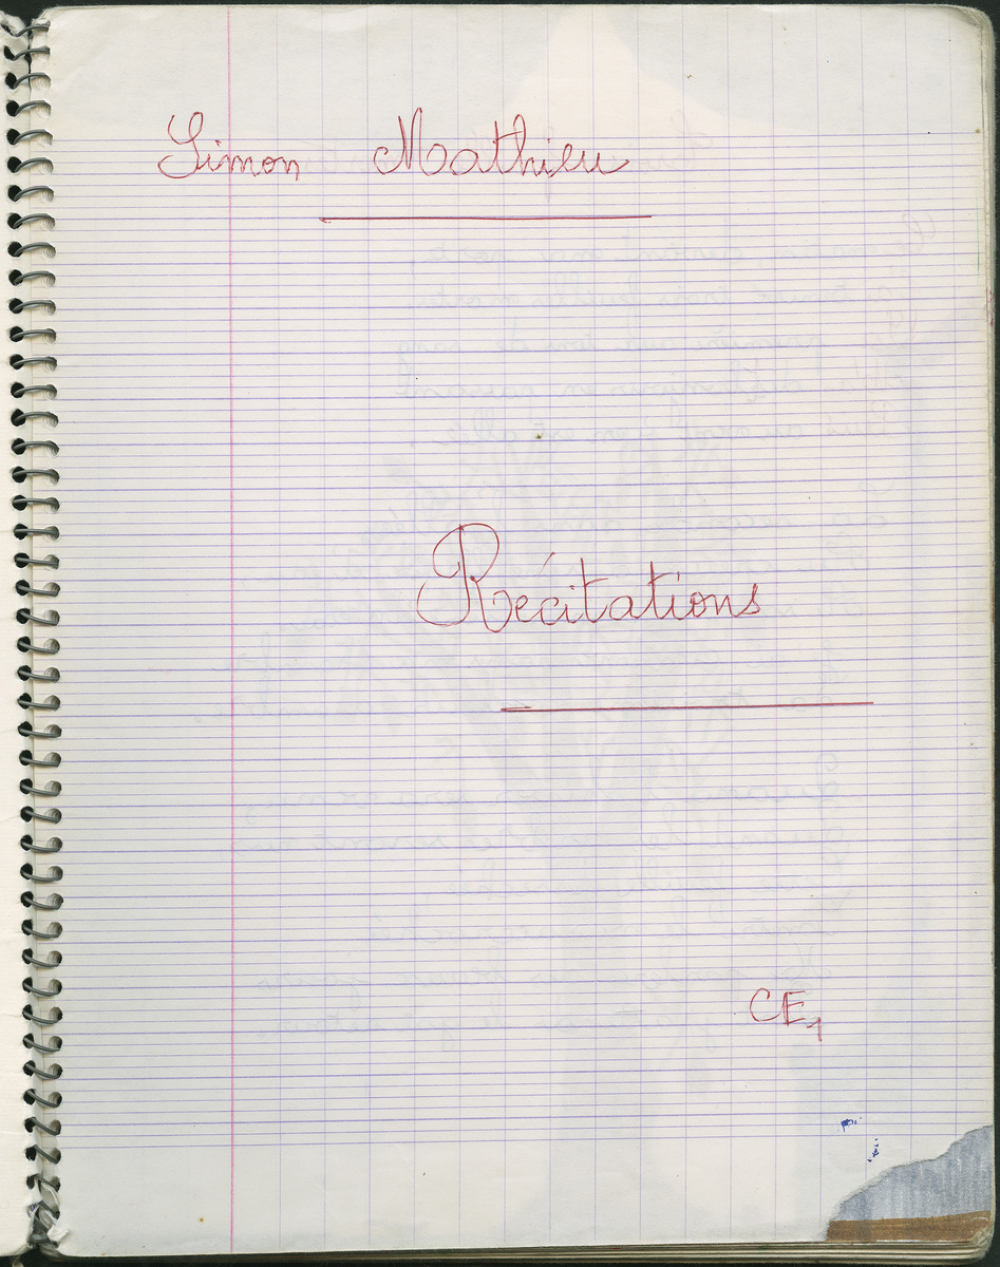 Simon Mathieu
Récitations
CE1